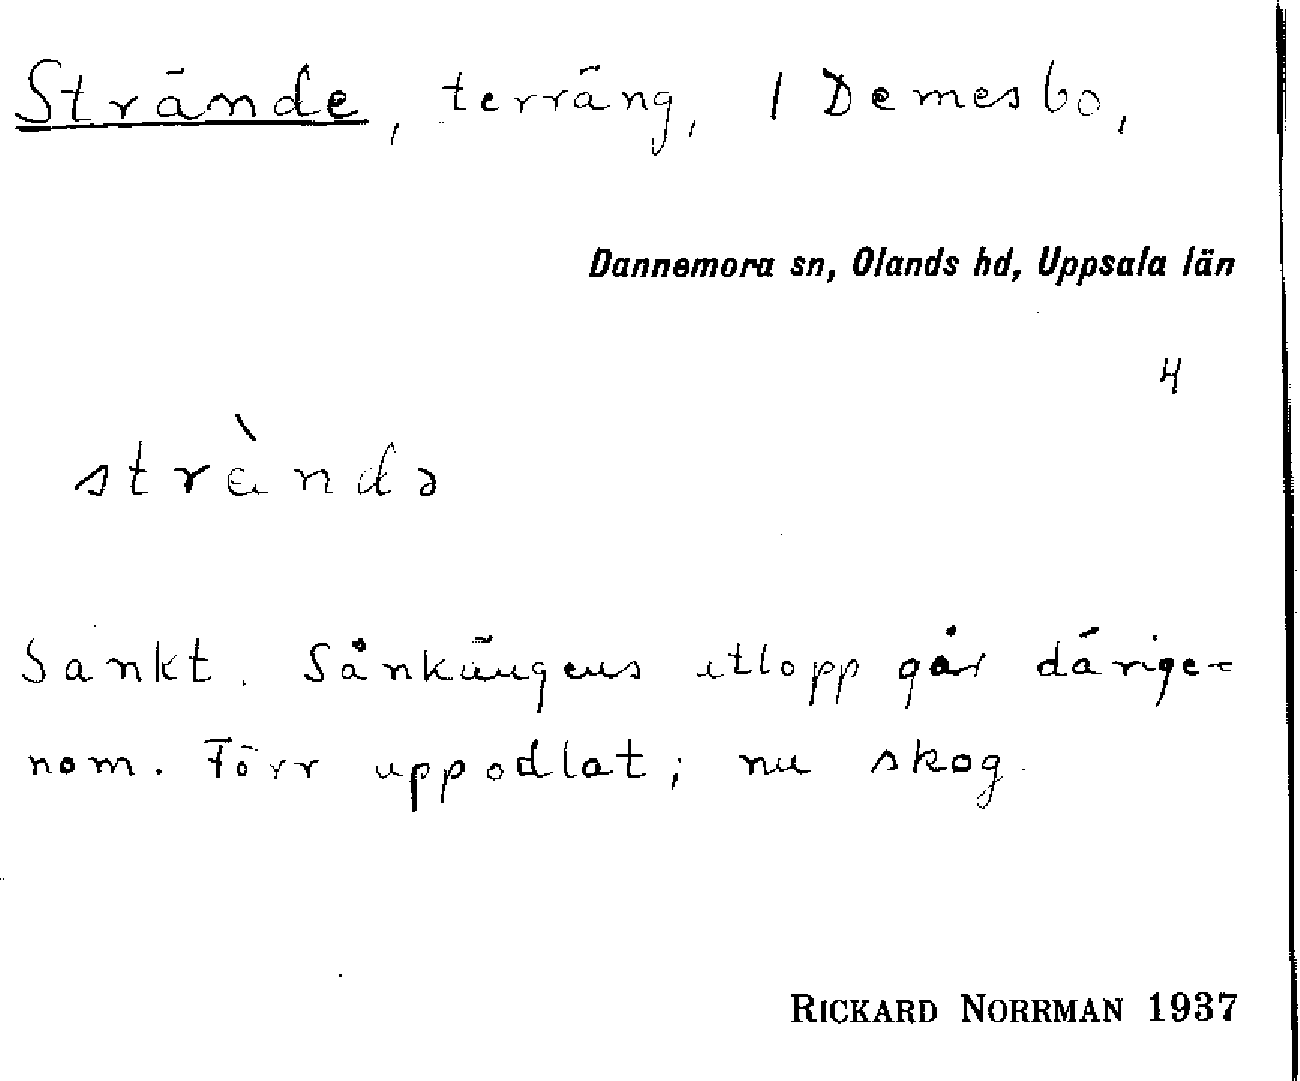 Strände, terräng, / Demesbo,
Dannemora sn, Olands hd, Uppsala län
4
stràndə
Sankt. Sånkängens utlopp går därige-
nom. Förr uppodlat; nu skog.
RICKARD NORRMAN 1937